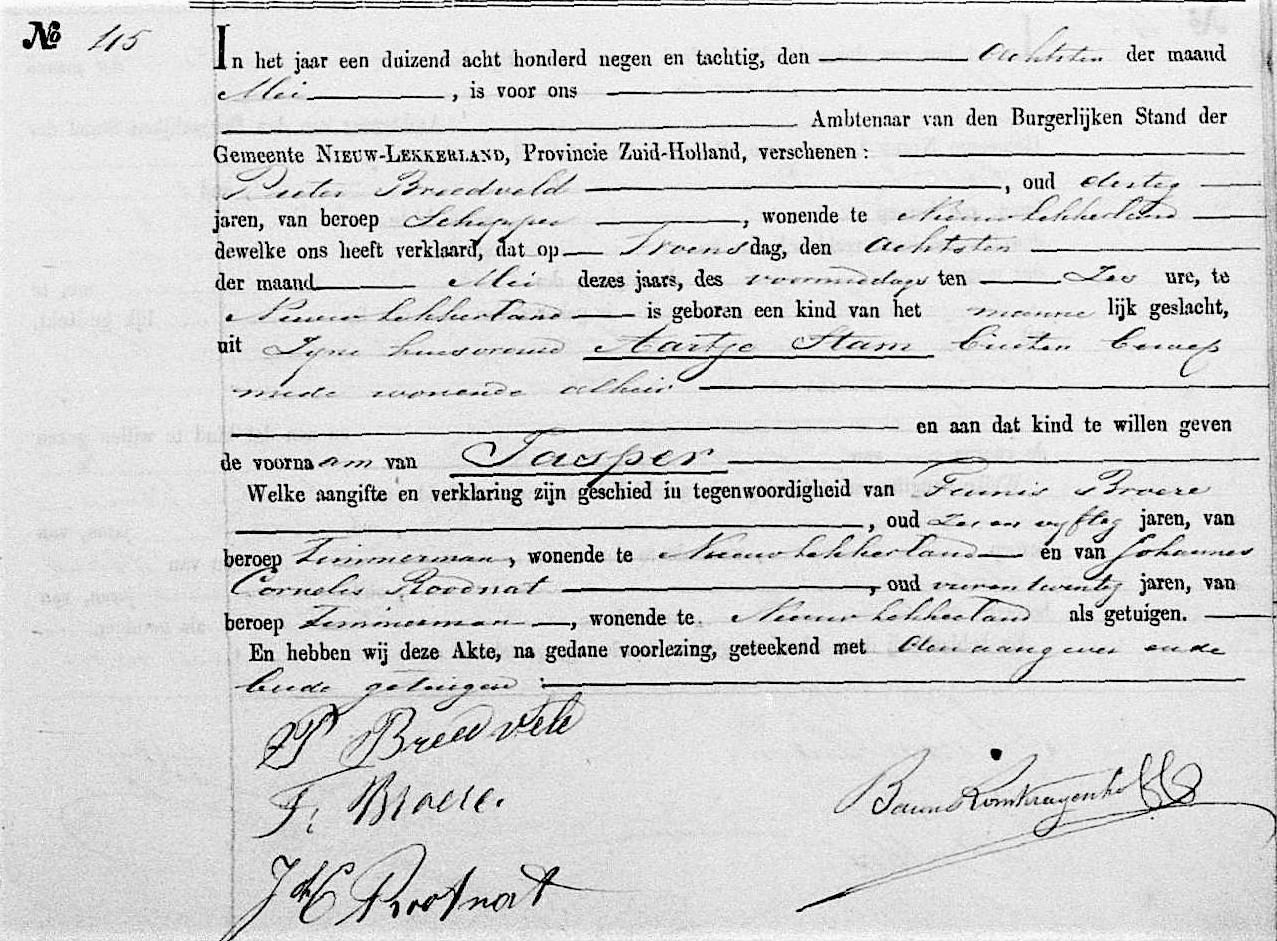 No 45
In het jaar een duizend acht honderd negen en tachtig, den achtsten der maand
Mei, is voor ons
Ambtenaar van den Burgerlijken Stand der
Gemeente NIEUW-LEKKERLAND, Provincie Zuid-Holland, verschenen:
Pieter Breedveld, oud dertig
jaren, van beroep Schipper, wonende te Nieuwlekkerland
dewelke ons heeft verklaard, dat op Woensdag, den achtsten
der maand Mei dezes jaars, des voormiddags ten zes ure, te
Nieuwlekkerland is geboren een kind van het mannelijk geslacht,
uit zyne huisvrouw Aartje Stam buiten beroep
mede wonende alhier
en aan dat kind te willen geven
de voornaam van Jasper
Welke aangifte en verklaring zijn geschied in tegenwoordigheid van Teunis Broere
, oud zes en vyftig jaren, van
beroep Timmerman, wonende te Nieuwlekkerland en van Johannes
Cornelis Roodnat, oud vierentwintig jaren, van
beroep Timmerman, wonende te Nieuwlekkerland als getuigen.
En hebben wij deze Akte, na gedane voorlezing, geteekend met den aangever en de
beide getuigen:
P Breedveld
T. Broere.
J C Roodnat